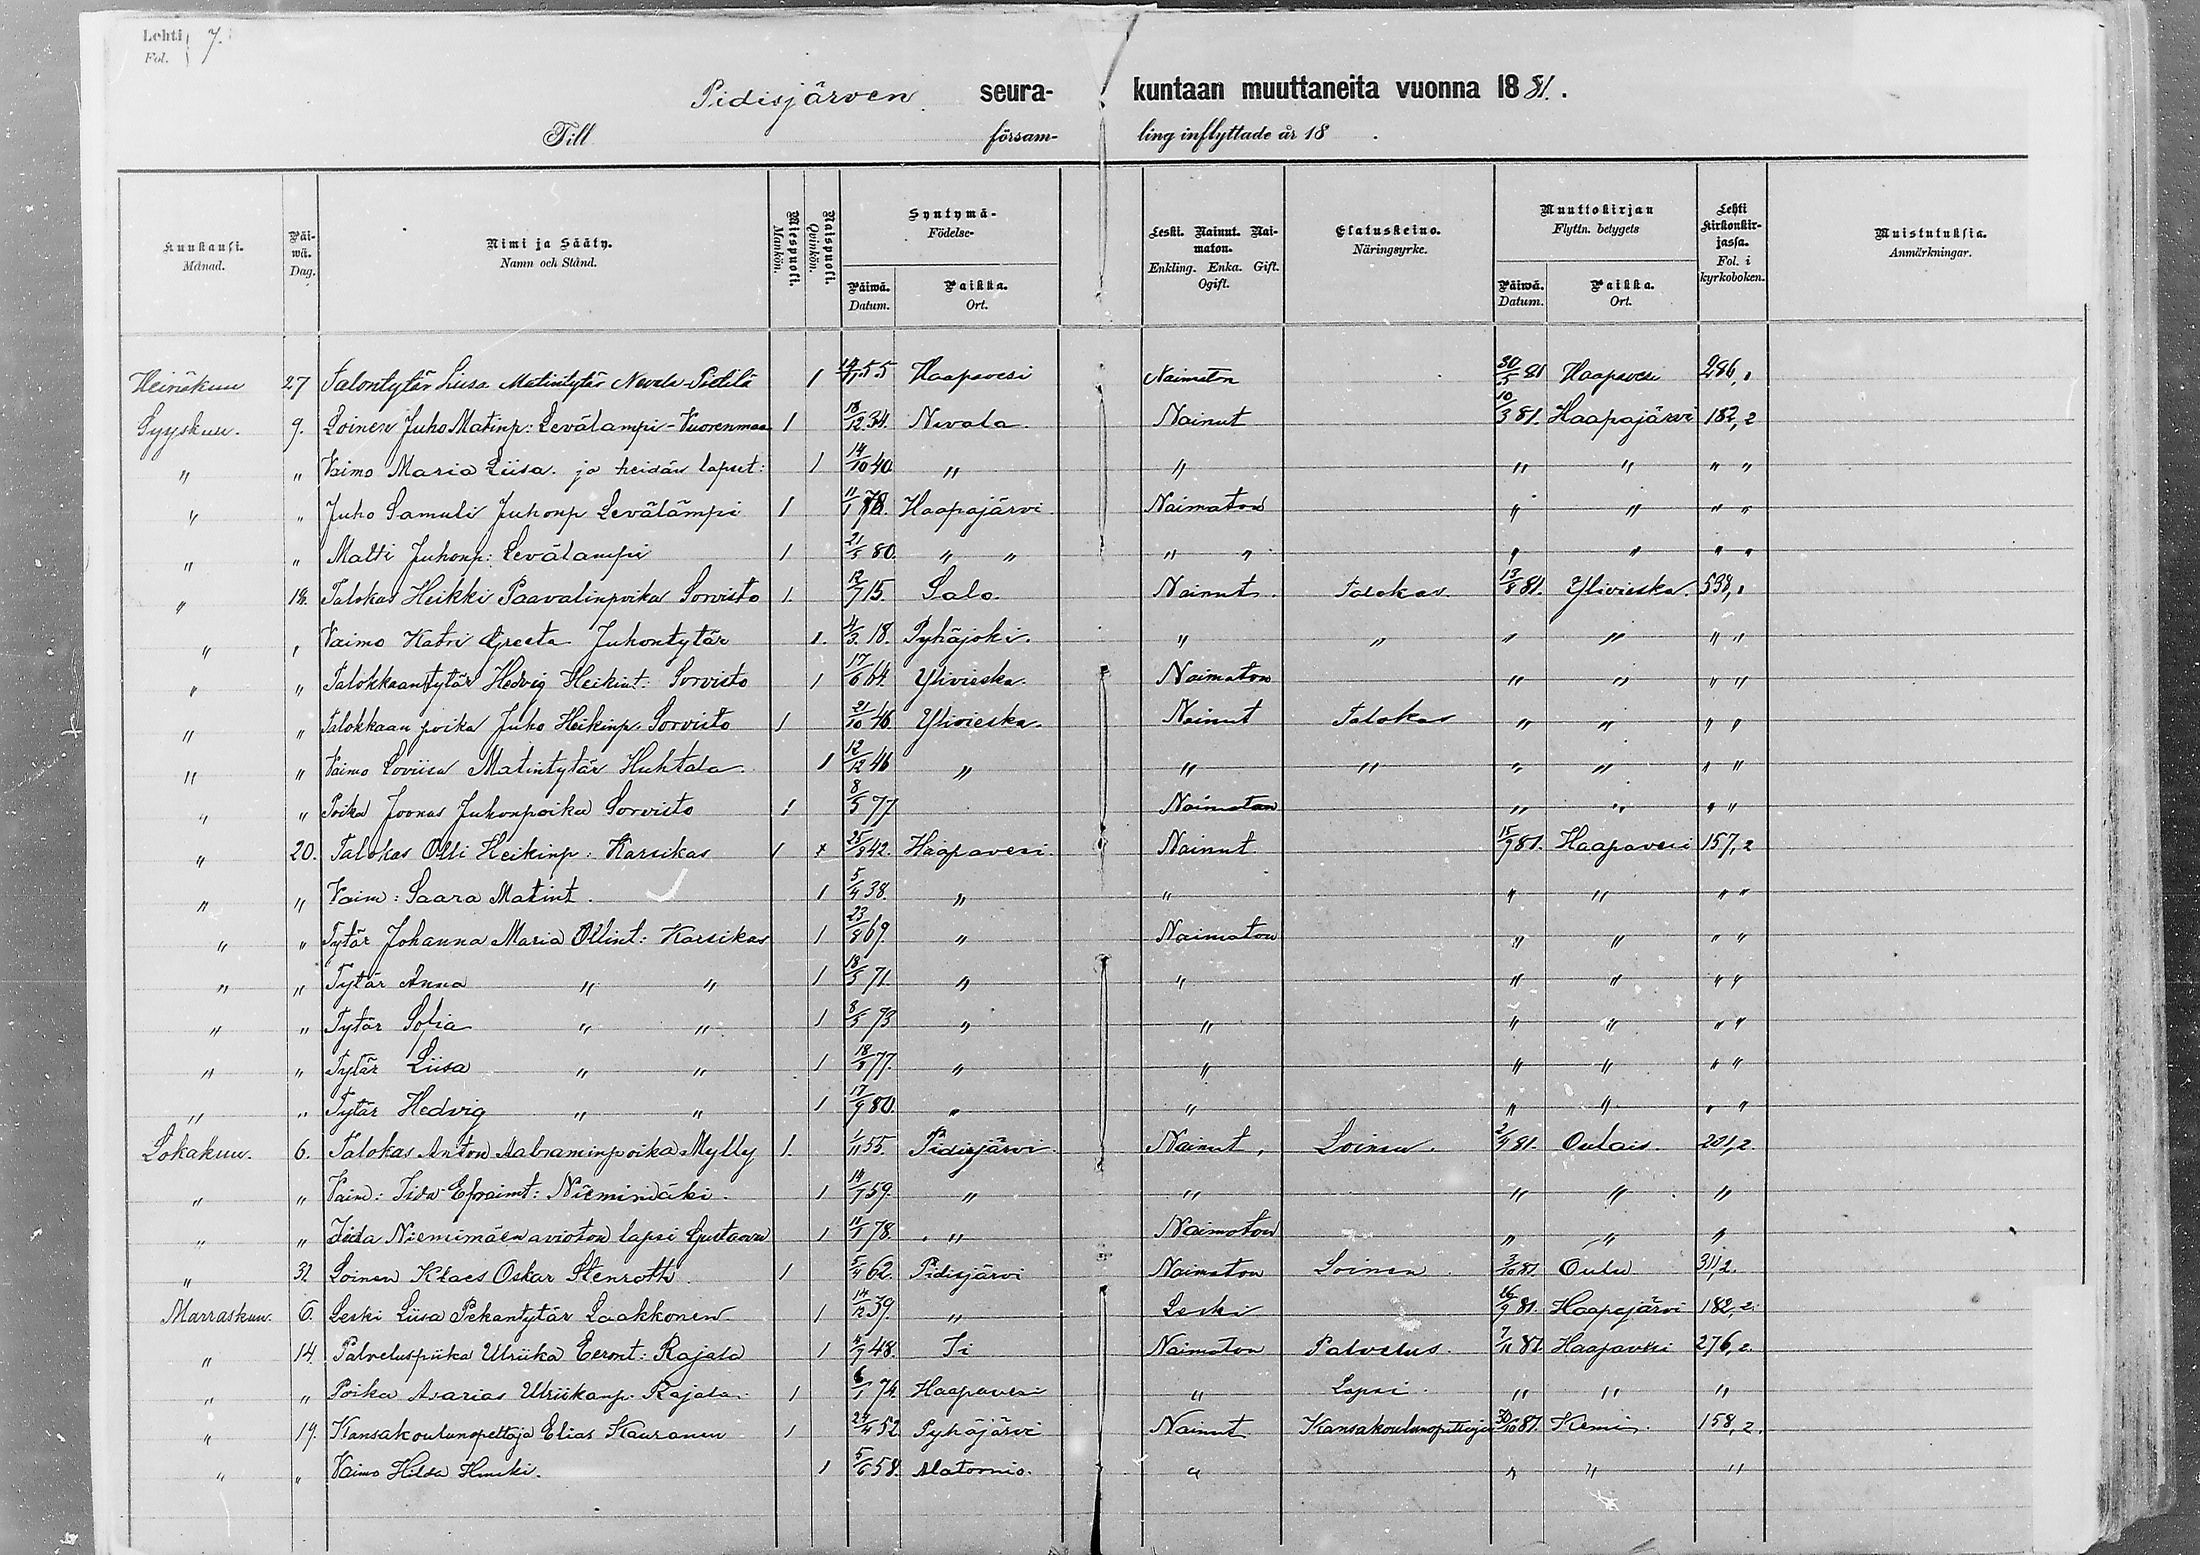 Lehti Fol. 7.
Pidisjärven seura- kuntaan muuttaneita vuonna 1881.
Till försam- ling inflyttade år 18 .
Kuukausi. Månad. Päiwä. Dag. Nimi ja Sääty. Namn och Stånd. Miespuoli. Mankön. Naispuoli. Qvinkön. Syntymä- Födelse- Päiwä. Datum. Paikka. Ort. Leski. Nainut. Naimaton. Enkling. Enka. Gift. Ogift. Elatuskeino. Näringsyrke. Muuttokirjan Flyttn. betygets Päiwä. Datum. Paikka. Ort. Lehti kirkonkirjassa. Fol. i kyrkoboken. Muistutuksia. Anmärkningar.
Heinäkuu 27 Talontytär Liisa Matintytär Nevala-Pietilä 1 55 Haapavesi Naimaton 30/5 81 Haapavesi 286,1
Syyskuu. 9. Loinen Juho Matinp: Levälampi-Vuorenmaa 1 18/12 34. Nivala Nainut 10/3 81. Haapajärvi 182,2
" " Vaimo Maria Liisa. ja heidän lapset: 1 14/10 40. " " " " " "
" " Juho Samuli Juhonp Levälampi 1 11/1 78. Haapajärvi Naimaton " " " "
" " Matti Juhonp: Levälampi 1 21/5 80. " " " " " " " "
" 18. Talokas Heikki Paavalinpoika Sorvisto 1. 12/7 15. Salo. Nainut. Talokas 13/8 81. Ylivieska. 538,1
" " Vaimo Katri Greeta Juhontytär 1. 4/3 18. Pyhäjoki. " " " " " "
" " Talokkaantytär Hedvig Heikint. Sorvisto 1 17/6 64. Ylivieska. Naimaton " " " "
" " Talokkaan poika Juho Heikinp. Sorvisto 1 21/10 46 Ylivieska. Nainut Talokas " " " "
" " Vaimo Loviisa Matintytär Huhtala. 1 12/12 46 " " " " " " "
" " Poika Joonas Juhonpoika Sorvisto 1 8/5 77. Naimaton " " " "
" 20. Talokas Olli Heikinp: Karsikas 1 x 25/9 42. Haapavesi Nainut 15/9 81. Haapavesi 157,2
" " Vaim: Saara Matint. 1 5/4 38. " " " " " "
" " Tytär Johanna Maria Ollint: Karsikas 1 23/8 69. " Naimaton " " " "
" " Tytär Anna " " 1 18/5 71. " " " " " "
" " Tytär Sofia " " 1 8/5 73 " " " " " "
" " Tytär Liisa " " 1 77. " " " " " "
" " Tytär Hedvig " " 1 17/9 80. " " " " " "
Lokakuu. 6. Talokas Anton Aabraminpoika Mylly 1. 1/11 55. Pidisjärvi. Nainut, Loinen. 2/4 81. Oulais. 201,2.
" " Vaim: Iida Efraimt: Niemimäki. 1 14/7 59. " " " " "
" " Iida Niemimäen avioton lapsi Gustaava 1 11/1 78. " Naimaton " " "
" Loinen Klaes Oskar Stenroth. 1 5/4 62. Pidisjärvi Naimaton Loinen. 3/10 81. Oulu 311,2.
Marraskuu. 6. Leski Liisa Pekantytär Laakkonen 1 14/12 39. " Leski 26/9 81. Haapajärvi 182,2.
" 14. Palveluspiika Ulriika Eeront: Rajala 1 4/9 48. Ii Naimaton Palvelus. 7/11 81. Haapavesi 276,2.
" " Poika Asarias Ulriikanp. Rajala. 1 6/1 74. Haapavesi " Lapsi. " " "
" 19. Kansakoulunopettaja Elias Kauranen 1 24/4 52 Pyhäjärvi Nainut Kansakoulunopettaja 30/10 81. Kemi. 158,2.
" " Vaimo Hilda 1 5/6 58. Alatornio. " " " "